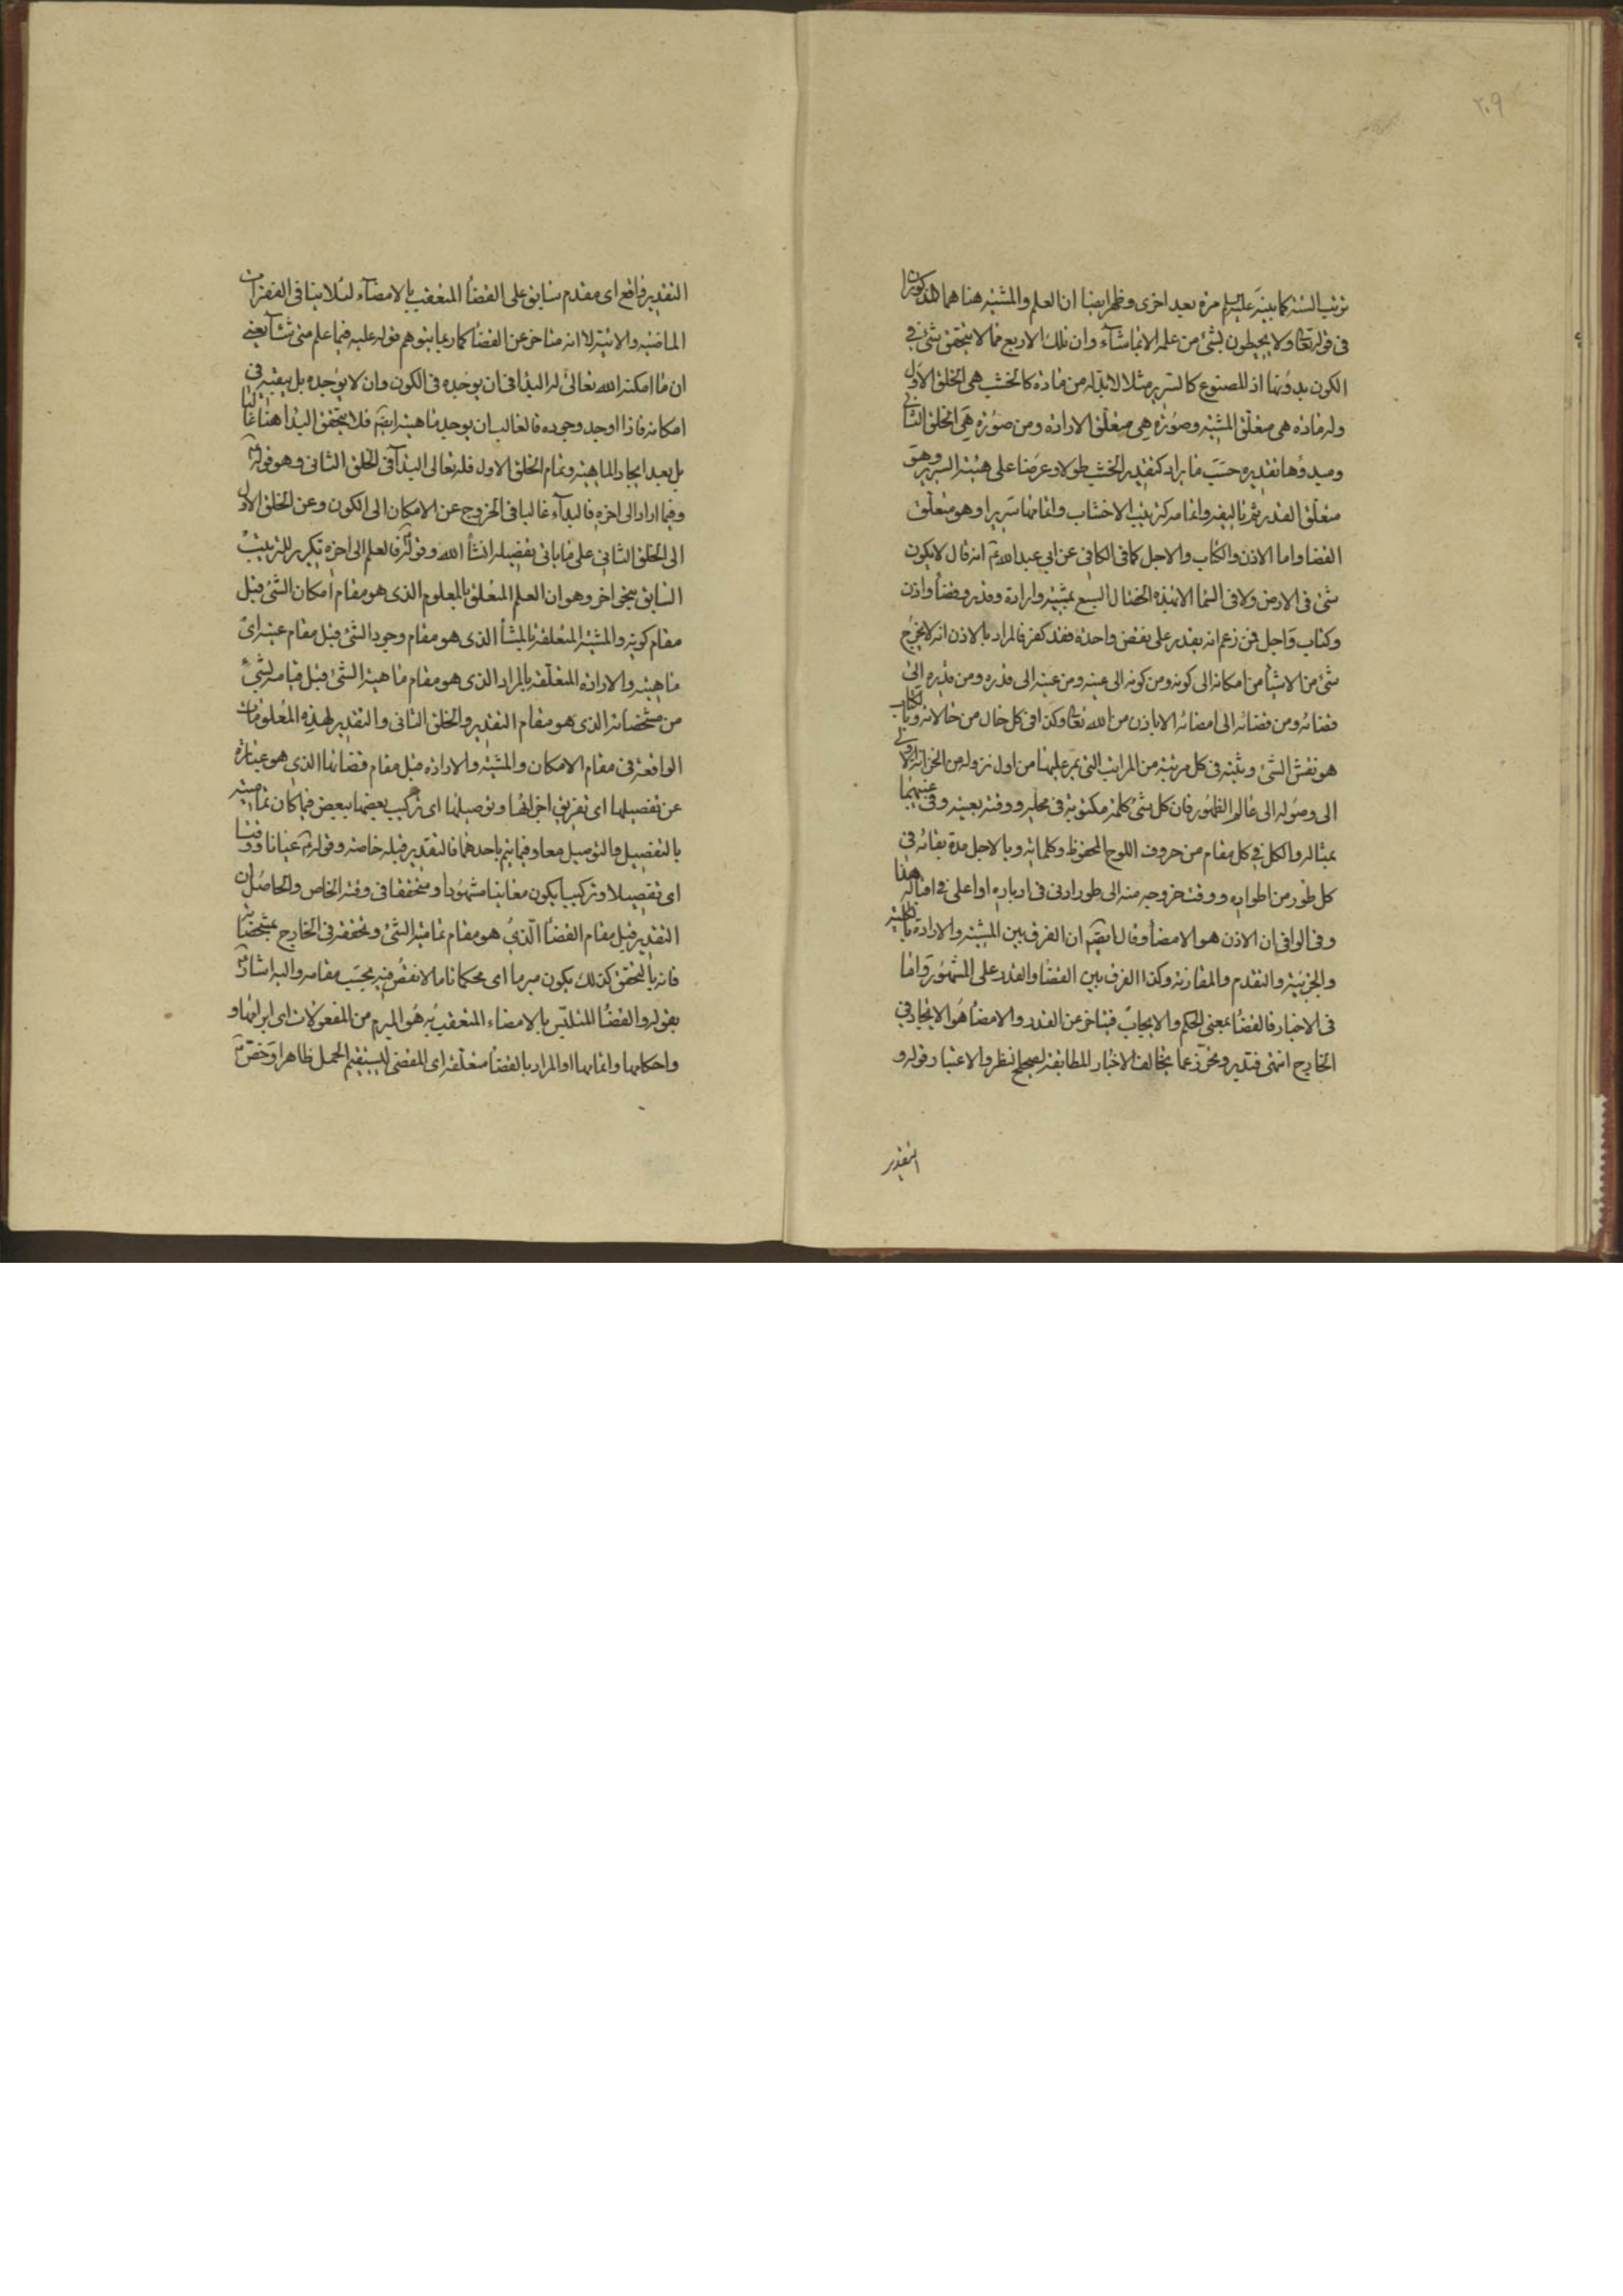 ٢٠٩
ترتيب الستة كما بينه عليه السلم مرة بعد اخرى وظهر ايضا ان العلم والمشية هنا هما المذكوران
في قوله تعالى ولا يحيطون بشئ من علمه الا بما شاء وان تلك الاربع مما لا يتحقق شئ في
الكون بدونها اذ المصنوع كالسرير مثلا لا بد له من مادة كالخشب هي الخلق الاول
وله مادة هي متعلق المشية وصورة هي متعلق الارادة ومن صورة هي الخلق الثاني
ومبدؤها تقديره حسب ما يراد كتقدير الخشب طولا وعرضا على هيئة السرير وهو
متعلق القدر ثم تاليفه واتمامه كترتيب الاخشاب واتمامها سريرا وهو متعلق
القضا واما الاذن والكتاب والاجل كما في الكافي عن ابي عبد الله ع انه قال لا يكون
شئ في الارض ولا في السما الا بهذه الخصال السبع بمشية وارادة وقدر وقضاء واذن
وكتاب واجل فمن زعم انه يقدر على نقض واحدة فقد كفر فالمراد بالاذن انه لا يخرج
شئ من الاشيا من امكانه الى كونه ومن كونه الى عينه ومن عينه الى قدره ومن قدره الى
قضائه ومن قضائه الى امضائه الا باذن من الله تعالى وكذا في كل حال من حالاته وبالكتاب
هو نقش الشئ وثبته في كل مرتبة من المراتب التي يمر عليها من اول نزوله من الخزانة الاولى
الى وصوله الى عالم الظهور فان كل شئ كلمة مكتوبة في محله ووقته بعينه وفي غيبهما
بمثاله والكل في كل مقام من حروف اللوح المحفوظ وكلماته وبالاجل مدة بقائه في
كل طور من اطواره ووقت خروجه منه الى طور ادنى في ادباره او اعلى في اقباله هذا
وفي الوافي ان الاذن هو الامضاء وقال ايضا ان الفرق بين المشية والارادة بالكلية
والجزئية والتقدم والمقارنة وكذا الفرق بين القضا والقدر على المشهور واما
في الاخبار فالقضا بمعنى الحكم والايجاب فيتاخر عن القدر والامضا هو الايجاد في
الخارج انتهى فتدبر وتحرز عما يخالف الاخبار المطابقة لصحيح النظر والاعتبار قوله و
التقدير
التقدير واقع اى مقدم سابق على القضا المتعقب بالامضاء لئلا ينافي الفقرات
الماضية والاتية لا انه متاخر عن القضا كما ربما يتوهم قوله عليه فيما علم متى شاء يعنى
ان ما امكنه الله تعالى له البدا في ان يوجده في الكون وان لا يوجده بل يبقيه في
امكانه فاذا اوجد وجوده فالغالب ان يوجد ماهيته ايضا فلا يتحقق البدا هنا غالبا
بل بعد ايجاد الماهية وتمام الخلق الاول فله تعالى البداء في الخلق الثاني وهو قوله ع
وفيما اراد الى اخره فالبداء غالبا في الخروج عن الامكان الى الكون وعن الخلق الاول
الى الخلق الثاني على ما ياتى تفصيله انشا الله وقوله ع فالعلم الى اخره تكرير للترتيب
السابق بنحو اخر وهو ان العلم المتعلق بالمعلوم الذي هو مقام امكان الشئ قبل
مقام كونه والمشية المتعلقة بالمشا الذي هو مقام وجود الشئ قبل مقام عينه اى
ماهيته والارادة المتعلقة بالمراد الذي هو مقام ماهية الشئ قبل قيامه لشئ
من مشخصاته الذي هو مقام التقدير والخلق الثاني والتقدير لهذه المعلومات
الواقعة في مقام الامكان والمشية والارادة قبل مقام قضائها الذي هو عبارة
عن تفصيلها اى تفريق اجزائها وتوصيلها اى تركيب بعضها ببعض فيما كان تماميته
بالتفصيل والتوصيل معا وفيما يتم باحدهما فالتقدير قبله خاصة وقوله ع عيانا ووقتا
اى تفصيلا وتركيبا يكون معاينا مشهودا ومتحققا في وقته الخاص والحاصل ان
التقدير قبل مقام القضا الذي هو مقام تمامية الشئ وتحققه في الخارج بمشخصاته
فانه بالتحقق كذلك يكون مبرما اى محكما تاما لا نقص فيه بحسب مقامه واليه اشار ع
بقوله والقضا المتلبس بالامضاء المتعقب به هو المبرم من المفعولات اى ابرامها و
واحكامها واتمامها او المراد بالقضا متعلقه اى المقضى ليستقيم الحمل ظاهرا وخص ع